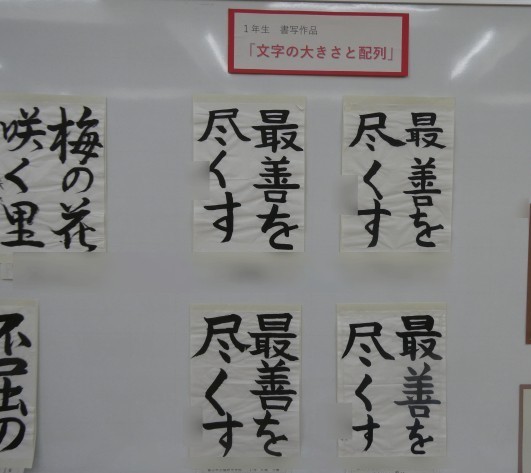 1年生 書写作品
「文字の大きさと配列」
梅の花
咲く里
最善を
尽くす
最善を
尽くす
不屈の
最善を
尽くす
最善を
尽くす